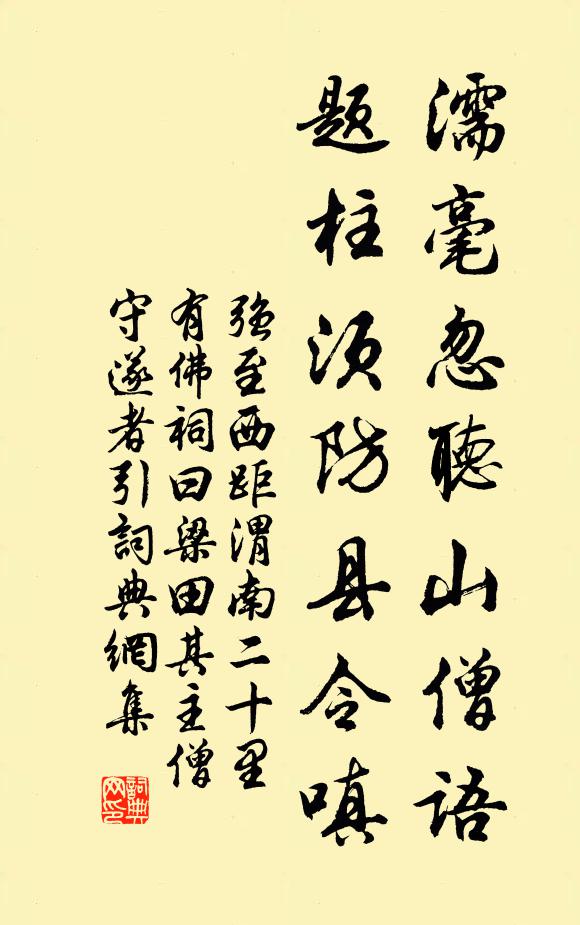 濡毫忽聽山僧語
題柱须防县令嗔
強至西距渭南二十里
有佛祠曰梁田其主僧
守遂者引詞典網集
詞典
网印